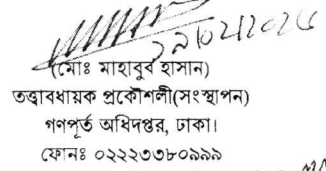 ২৯/০২/২০২৪
(মোঃ মাহাবুব হাসান)
তত্ত্বাবধায়ক প্রকৌশলী(সংস্থাপন)
গণপূর্ত অধিদপ্তর, ঢাকা।
ফোনঃ ০২২২৩৩৮০৯৯৯